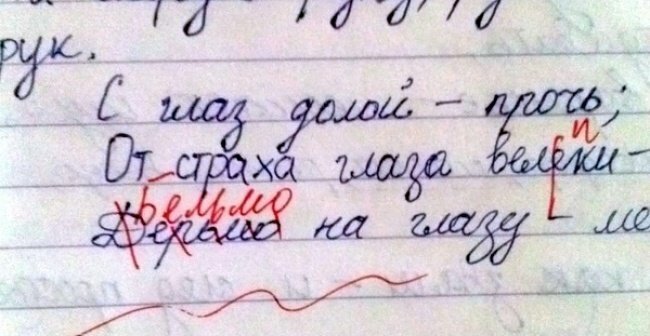 рук.
С глаз долой – прочь;
п
От страха глаза велеки –
Бельмо
Дерьмо на глазу – ме